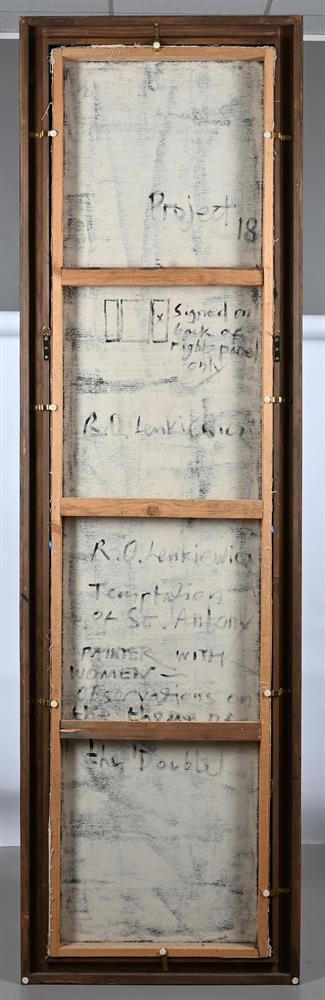 Project
18
x
Signed on
back of
right panel
only
R.O. Lenkiewicz
R.O. Lenkiewicz
Temptation
of St. Antony
PAINTER WITH
WOMEN -
Observations on
the theme of
the Double